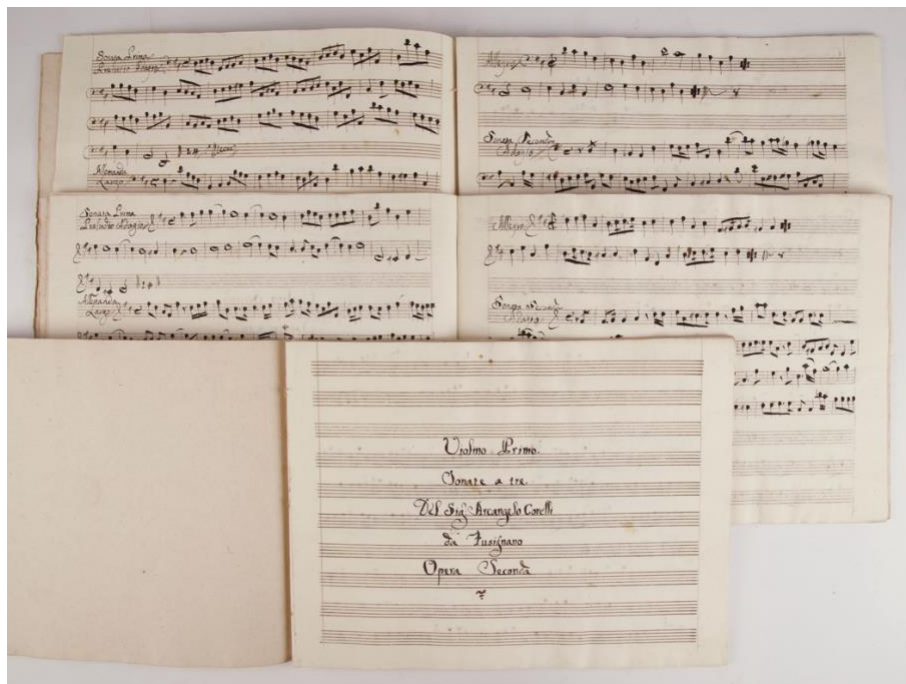 Sonata Prima
Preludio Adagio
Alemanda
Largo
Allegro
Sonata Seconda
Adagio
Sonata Prima
Preludio Adagio
Alemanda
Largo
Allegro
Sonata Seconda
Adagio
Violino Primo.
Sonate a tre
Del Sig Arcangelo Corelli
da Fusignano
Opera Seconda